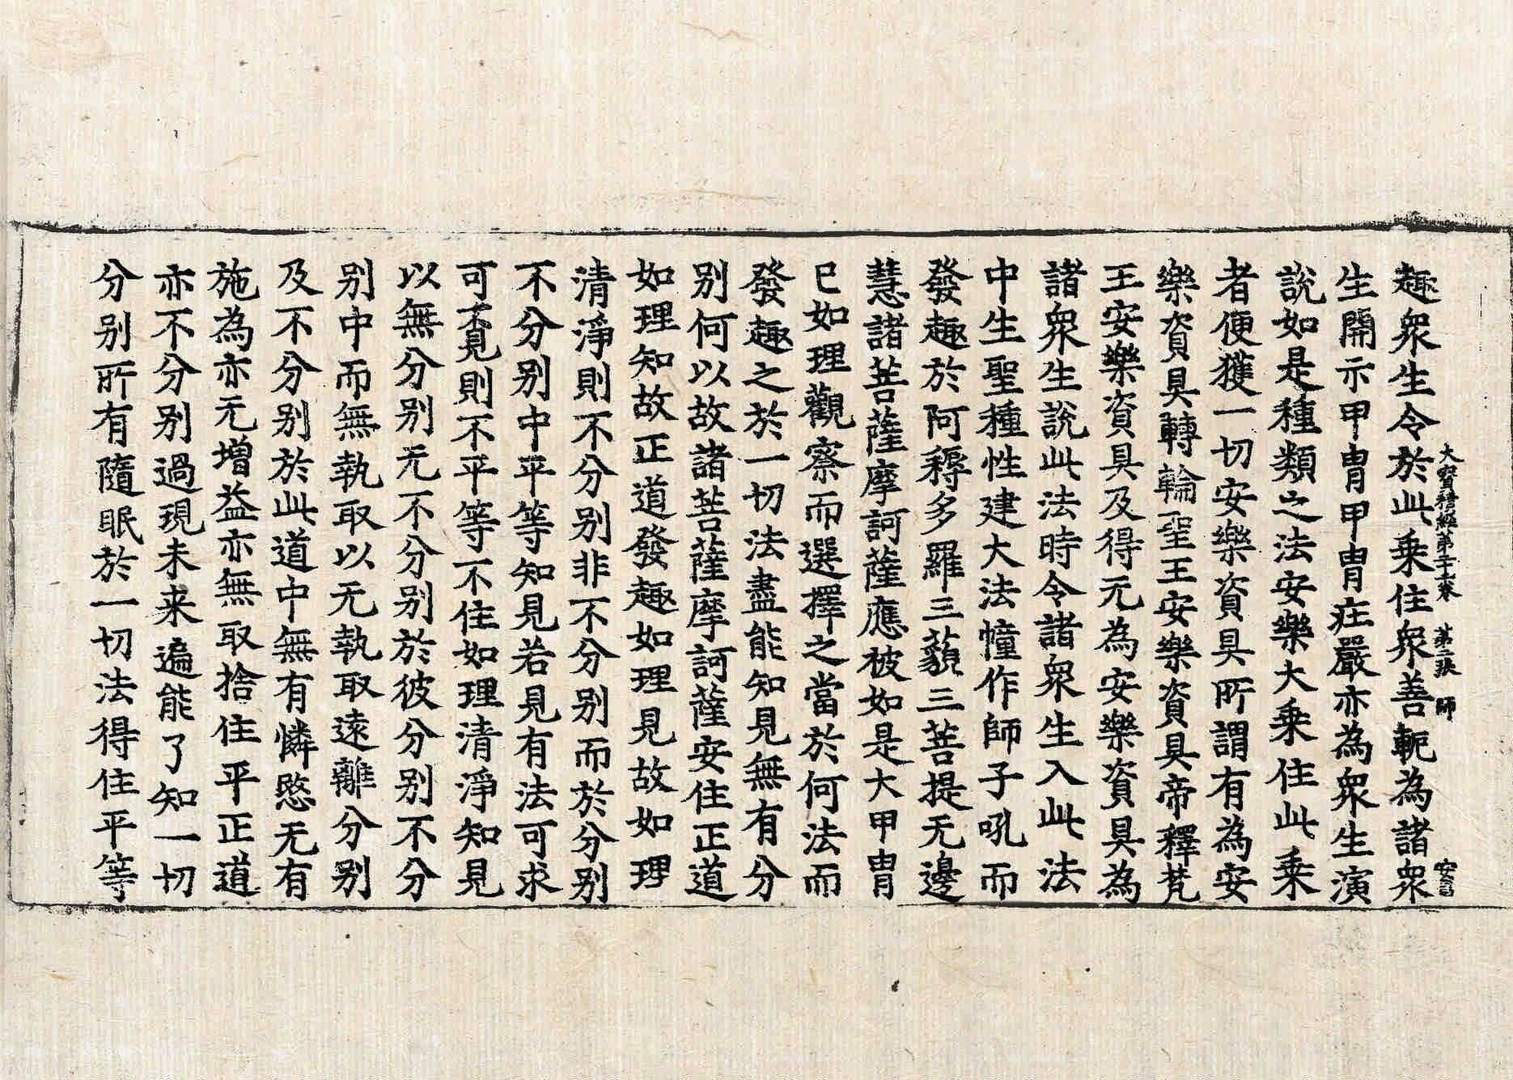 趣衆生令於此乗住衆善軛為諸衆
大寶積經第二十卷 第二張 師
生開示甲冑甲冑莊嚴亦為衆生演
說如是種類之法安樂大乗住此乗
者便獲一切安樂資具所謂有為安
樂資具轉輪聖王安樂資具帝釋梵
王安樂資具及得无為安樂資具為
諸衆生說此法時令諸衆生入此法
中生聖種性建大法幢作師子吼而
發趣於阿耨多羅三藐三菩提无邊
慧諸菩薩摩訶薩應被如是大甲冑
已如理觀察而選擇之當於何法而
發趣之於一切法盡能知見無有分
别何以故諸菩薩摩訶薩安住正道
如理知故正道發趣如理見故如理
清淨則不分别非不分别而於分别
不分别中平等知見若見有法可求
可覓則不平等不住如理清淨知見
以無分别无不分别於彼分别不分
别中而無執取以无執取遠離分别
及不分别於此道中無有憐愍无有
施為亦无增益亦無取捨住平正道
亦不分别過現未来遍能了知一切
分别所有隨眠於一切法得住平等